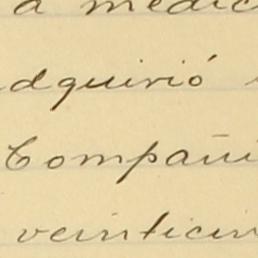 a medic
dquirió
Compañi
veinticin